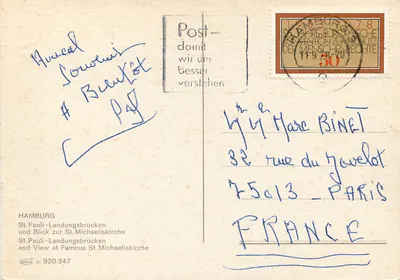 Amical
Souvenir
A Bientôt
Post—
damit
wir uns
besser
verstehen
HAMBURG
50
Mr Mme Marc BINET
32 rue du Javelot
75013 - PARIS
FRANCE
HAMBURG
St. Pauli-Landungsbrücken
und Blick zur St. Michaeliskirche
St. Pauli-Landungsbrücken
and View at Famous St. Michaeliskirche
920.347